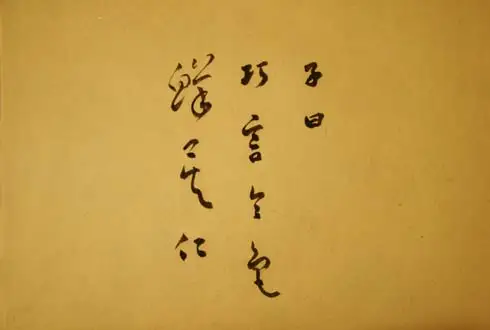 子曰
巧言令色
鮮矣仁